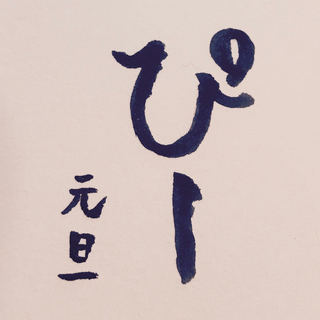 ぴー
元旦